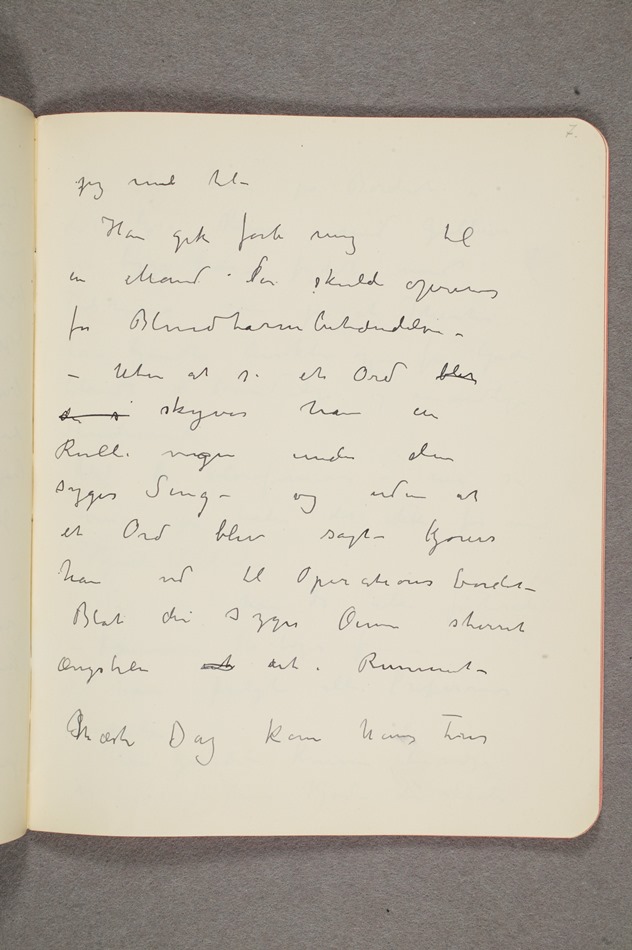 7.
jeg med
Han gik forbi mig til
en Mand der skulde opereres
for Blindtarmbetændelse –
– Uten at et Ord blev
skyves han en
Rulle vogn under den
syges Seng – og uden at
et Ord blev sagt – kjøres
han ud til Operations bordet –
Blot den Syges Øine stirret
ængstelig ut ut i Rummet –
Næste Dag kom hans